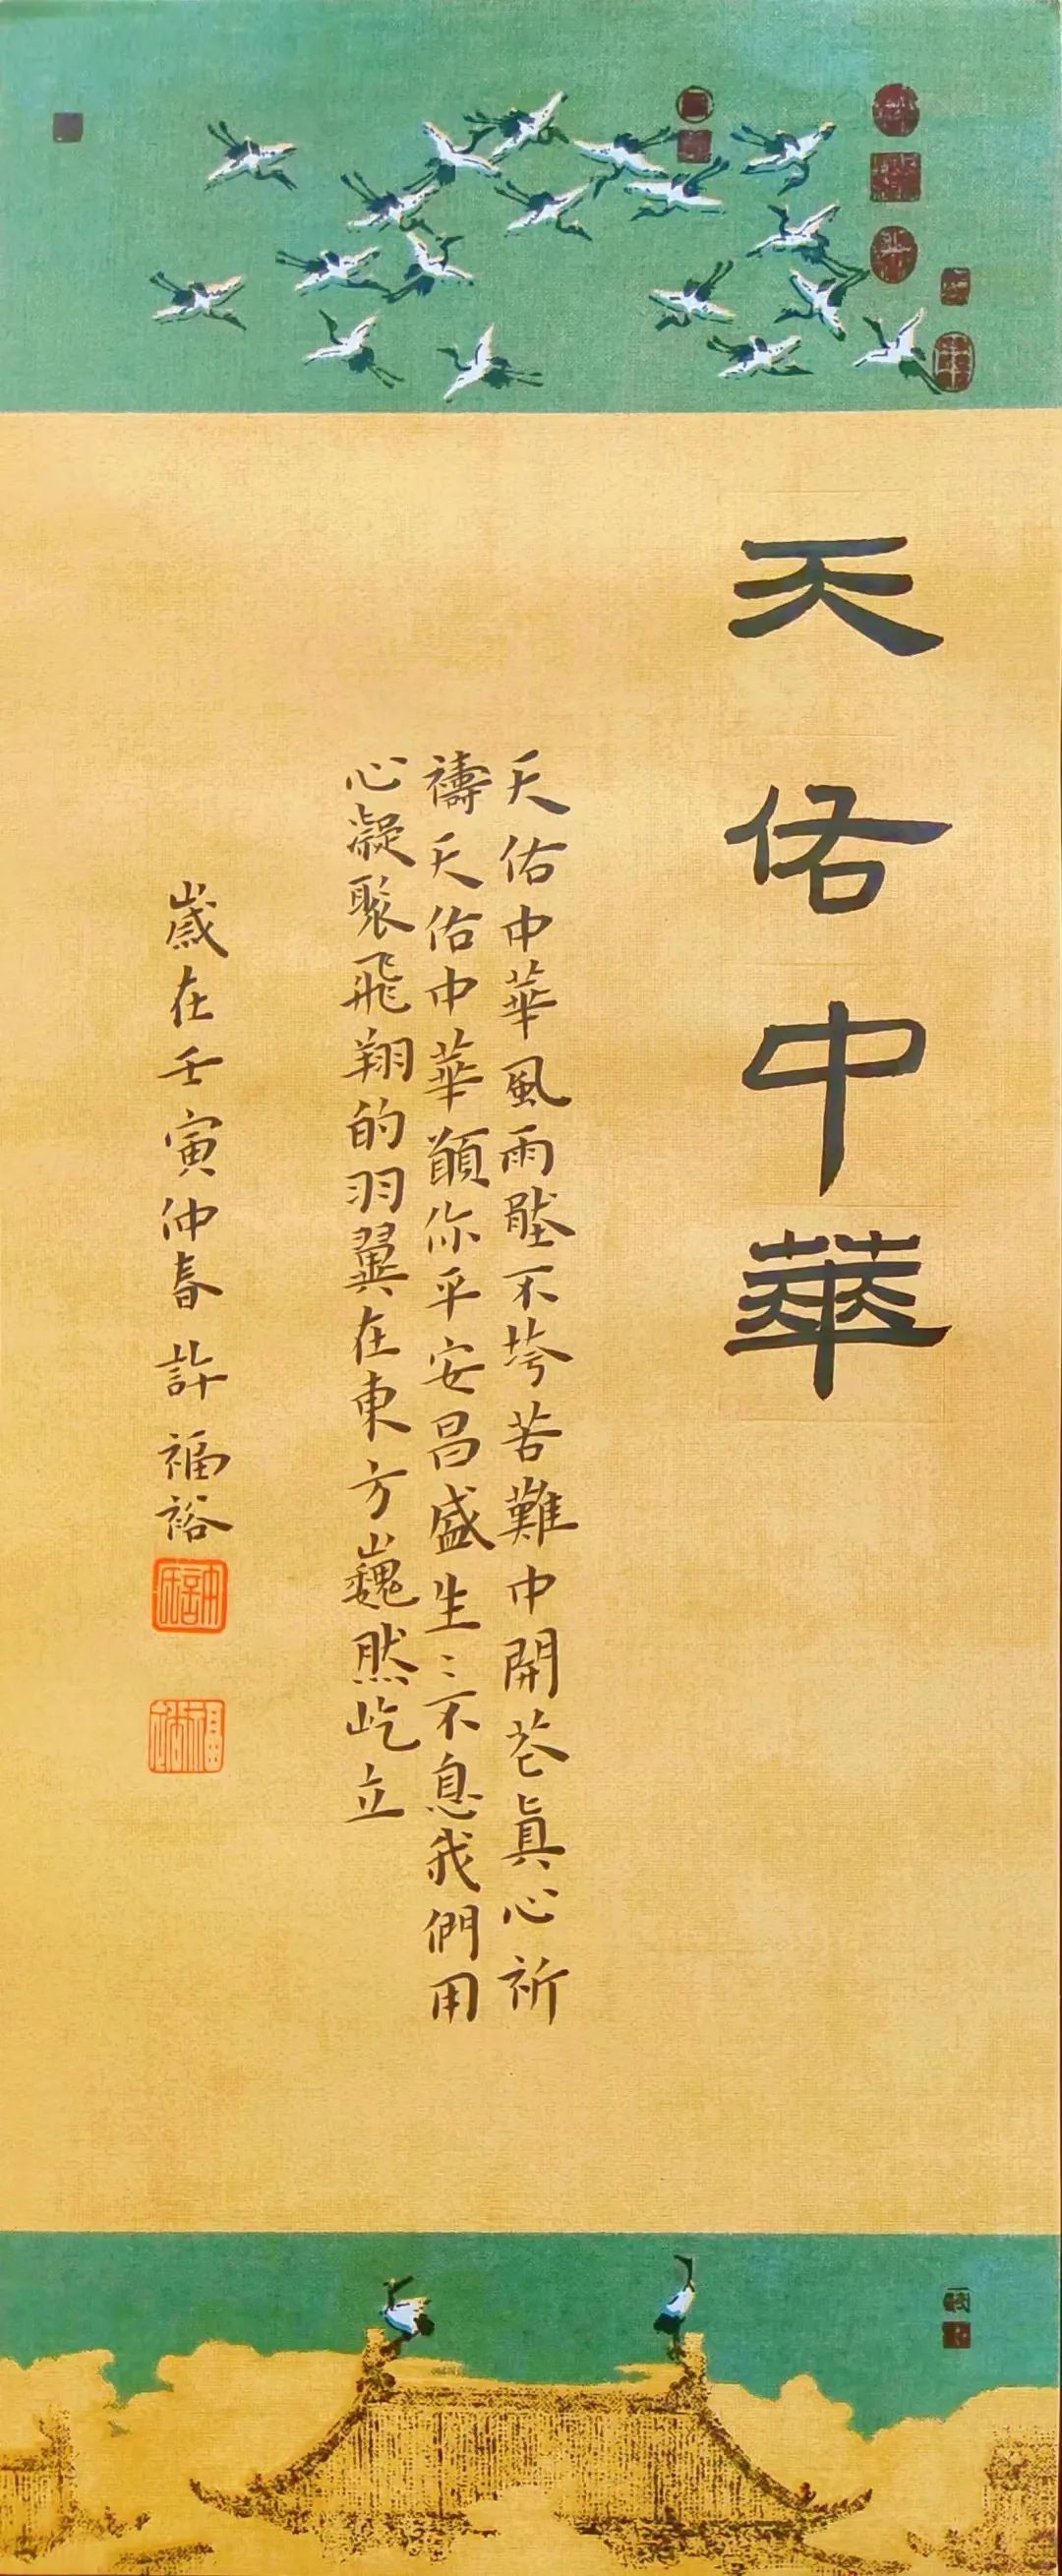 天佑中華
天佑中華風雨壓不垮苦難中開花真心祈
禱天佑中華願你平安昌盛生〻不息我們用
心凝聚飛翔的羽翼在東方巍然屹立
歲在壬寅仲春許福裕